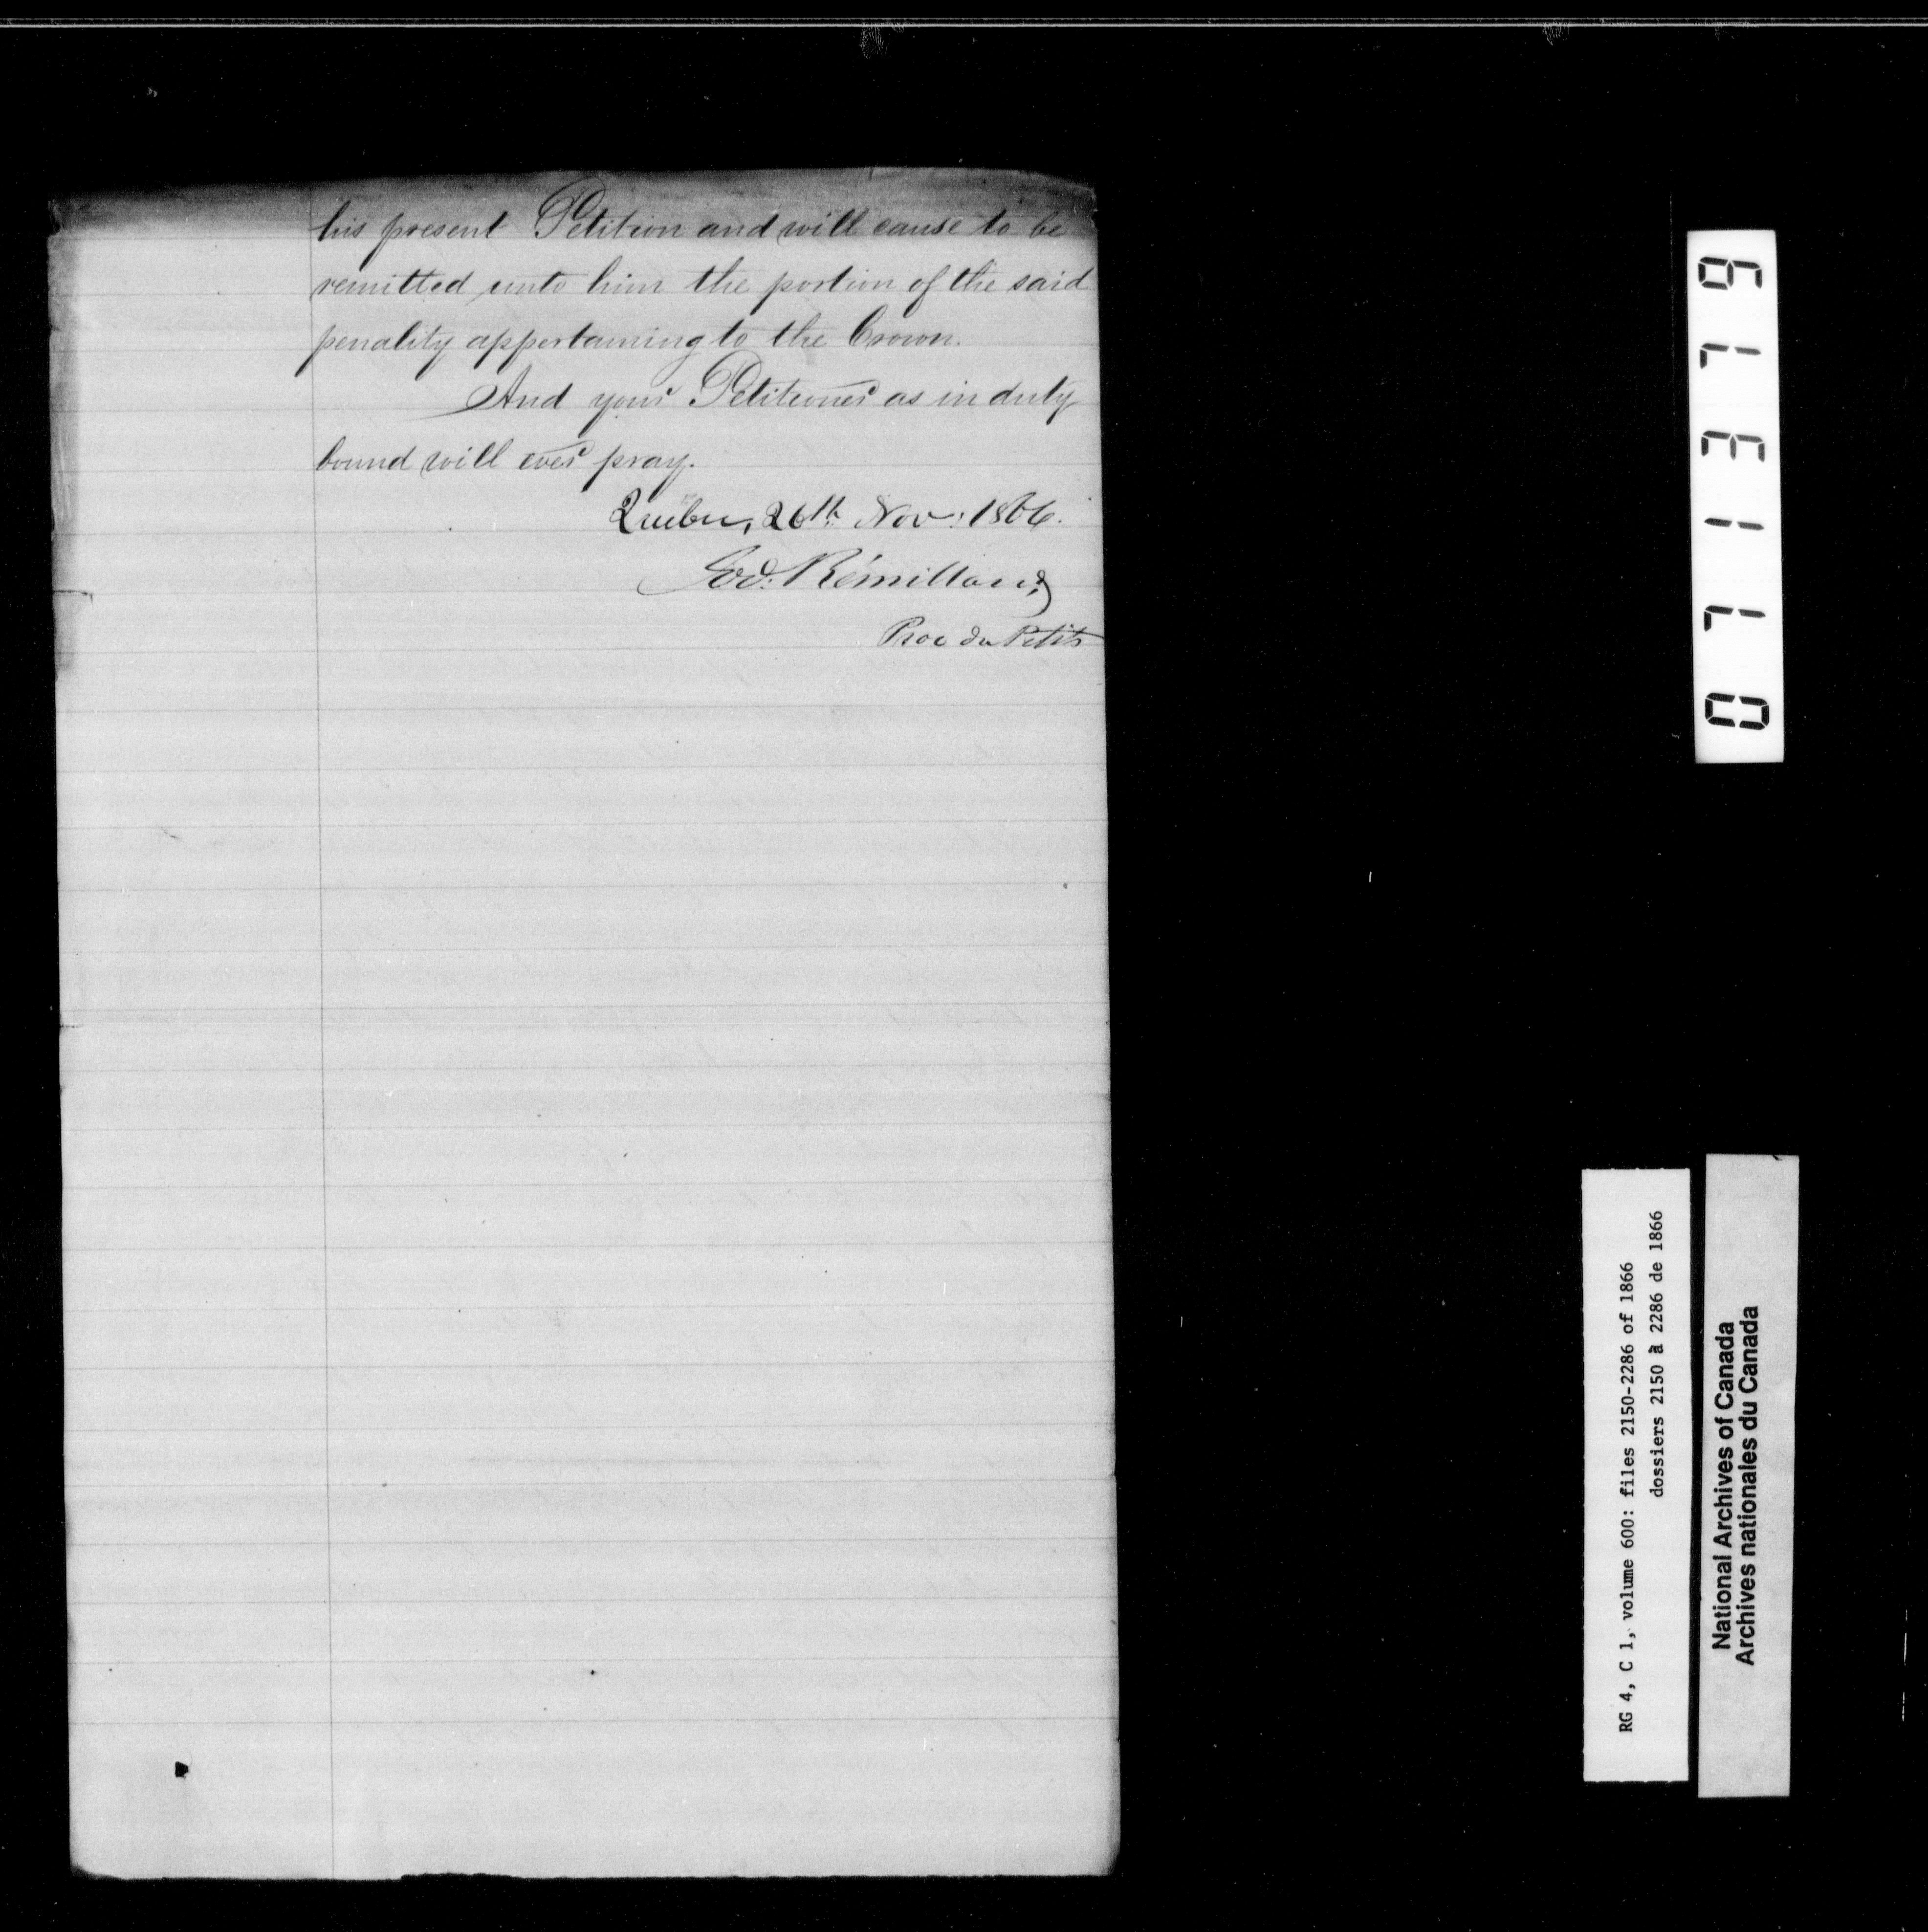 his present Petition and will cause to be
remitted unto him the portion of the said
penality appertaining to the Crown.
And your Petitioner as in duty
bound will ever pray.
Québec, 26th Nov: 1866.
Ed: Rémillard,
Proc du Petit
071379
RG 4, C 1, volume 600: files 2150-2286 of 1866
dossiers 2150 à 2286 de 1866
National Archives of Canada
Archives nationales du Canada